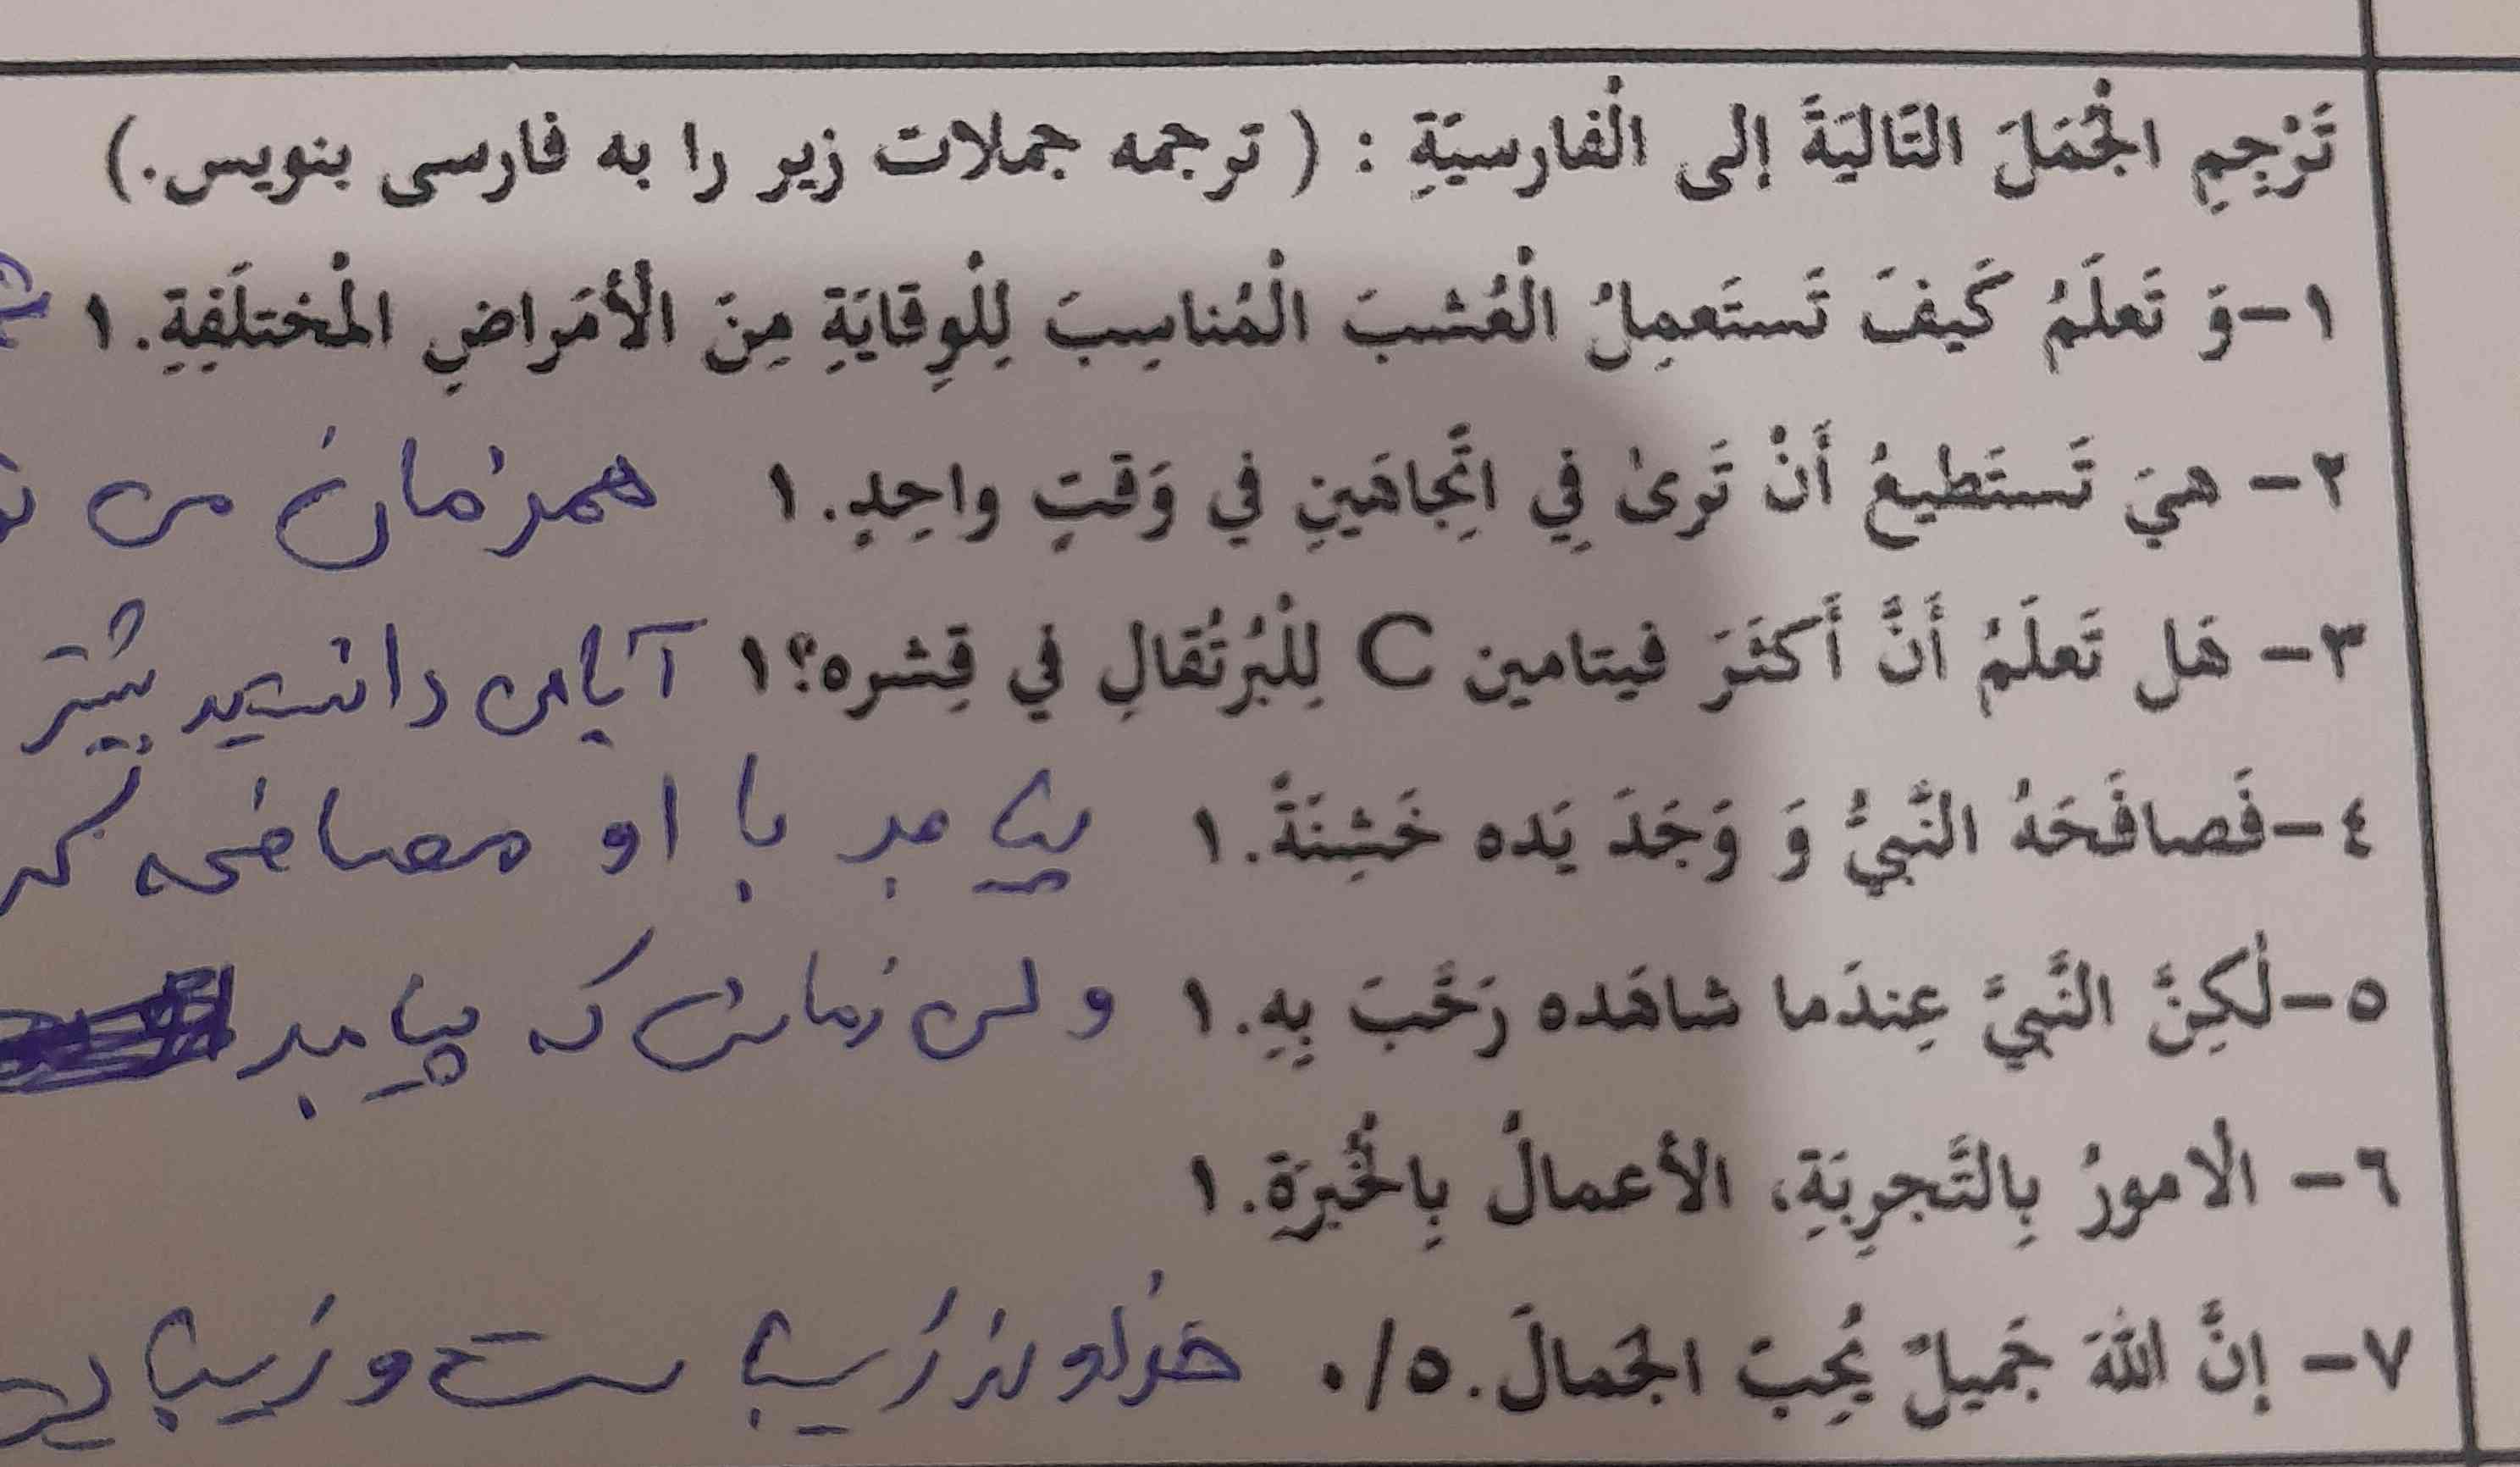 تَرْجِمِ الْجُمَلَ التّاليَةَ إلی الْفارسيَّةِ : ( ترجمه جملات زیر را به فارسی بنویس.)
١-وَ تَعلَمُ كَيفَ تَستَعمِلُ الْعُشبَ الْمُناسِبَ لِلْوِقايَةِ مِنَ الْأمَراضِ الْمُختلَفِةِ. ١
٢- هيَ تَستَطيعُ أَنْ تَرىٰ فِي اتِّجاهَينِ في وَقتٍ واحِدٍ. ١ همزمان می
٣- هَل تَعلَمُ أَنَّ أَكثَرَ فيتامين C لِلْبُرتُقالِ في قِشره؟ ١ آیا می دانستید بیشتر
٤-فَصافَحَهُ النَّبيُّ وَ وَجَدَ يَده خَشِنَةً. ١ پیامبر با او مصافحه
٥-لٰكِنَّ النَّبيَّ عِندَما شاهَده رَحَّبَ بِهِ. ١ ولی زمانی که پیامبر
٦- الْامورُ بِالتَّجرِبَةِ، الأعمالُ بِالْخُبرَةِ. ١
٧- إنَّ اللّٰهَ جَميلٌ يُحِبّ الجَمالَ. ٠/٥ خداوند زیباست و زیبایی